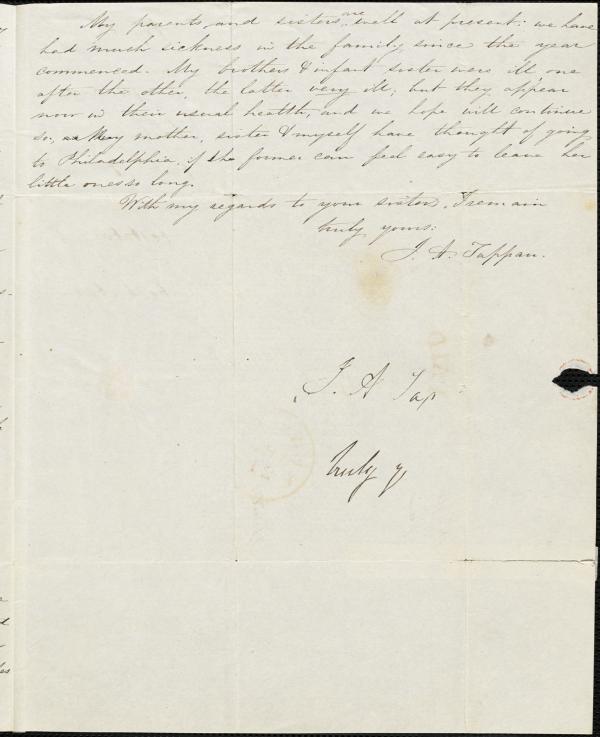 My parents, and sisters, are well at present: we have
had much sickness in the family since the year
commenced. My brothers & infant sister were ill one
after the other, the latter very ill; but they appear
now in their usual health, and we hope will continue
so. My mother, sister & myself have thought of going
to Philadelphia, if the former can feel easy to leave her
little ones so long.
With my regards to your sister, I remain
truly yours:
J. A. Tappan.
J. A Tap
truly y